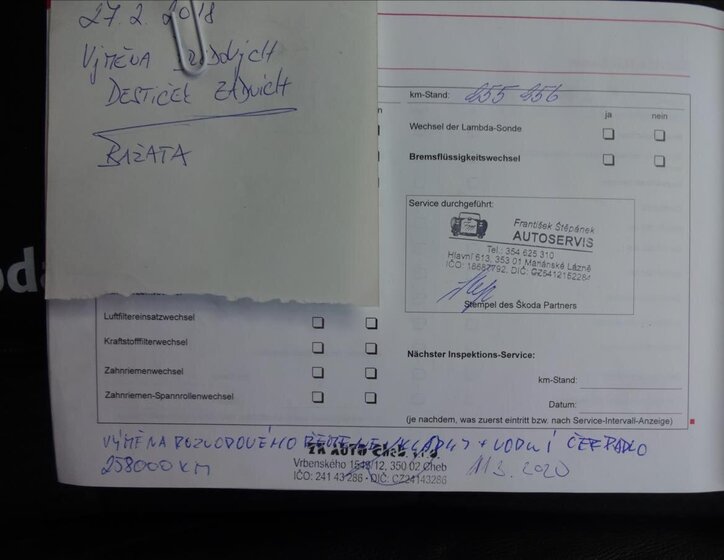 27.2. 2018
VÝMĚNA
DESTIČEK ZADNÍCH
BAŽATA
km-Stand: 255 256
ja nein
Wechsel der Lambda-Sonde
Bremsflüssigkeitswechsel
Service durchgeführt:
František Štěpánek
AUTOSERVIS
Tel.: 354 625 310
Hlavní 613, 353 01 Mariánské Lázně
IČO: 18687792, DIČ: CZ6412152284
Stempel des Škoda Partners
Luftfiltereinsatzwechsel
Kraftstofffilterwechsel
Zahnriemenwechsel
Zahnriemen-Spannrollenwechsel
Nächster Inspektions-Service:
km-Stand:
Datum:
(je nachdem, was zuerst eintritt bzw. nach Service-Intervall-Anzeige)
VÝMĚNA ROZVODOVÉHO ŘEMENE + VODNÍ ČERPADLO
ZK AUTO Cheb s.r.o.
258000 KM
Vrbenského 1548/12, 350 02 Cheb
11.3. 2020
IČO: 241 43 286 - DIČ: CZ24143286